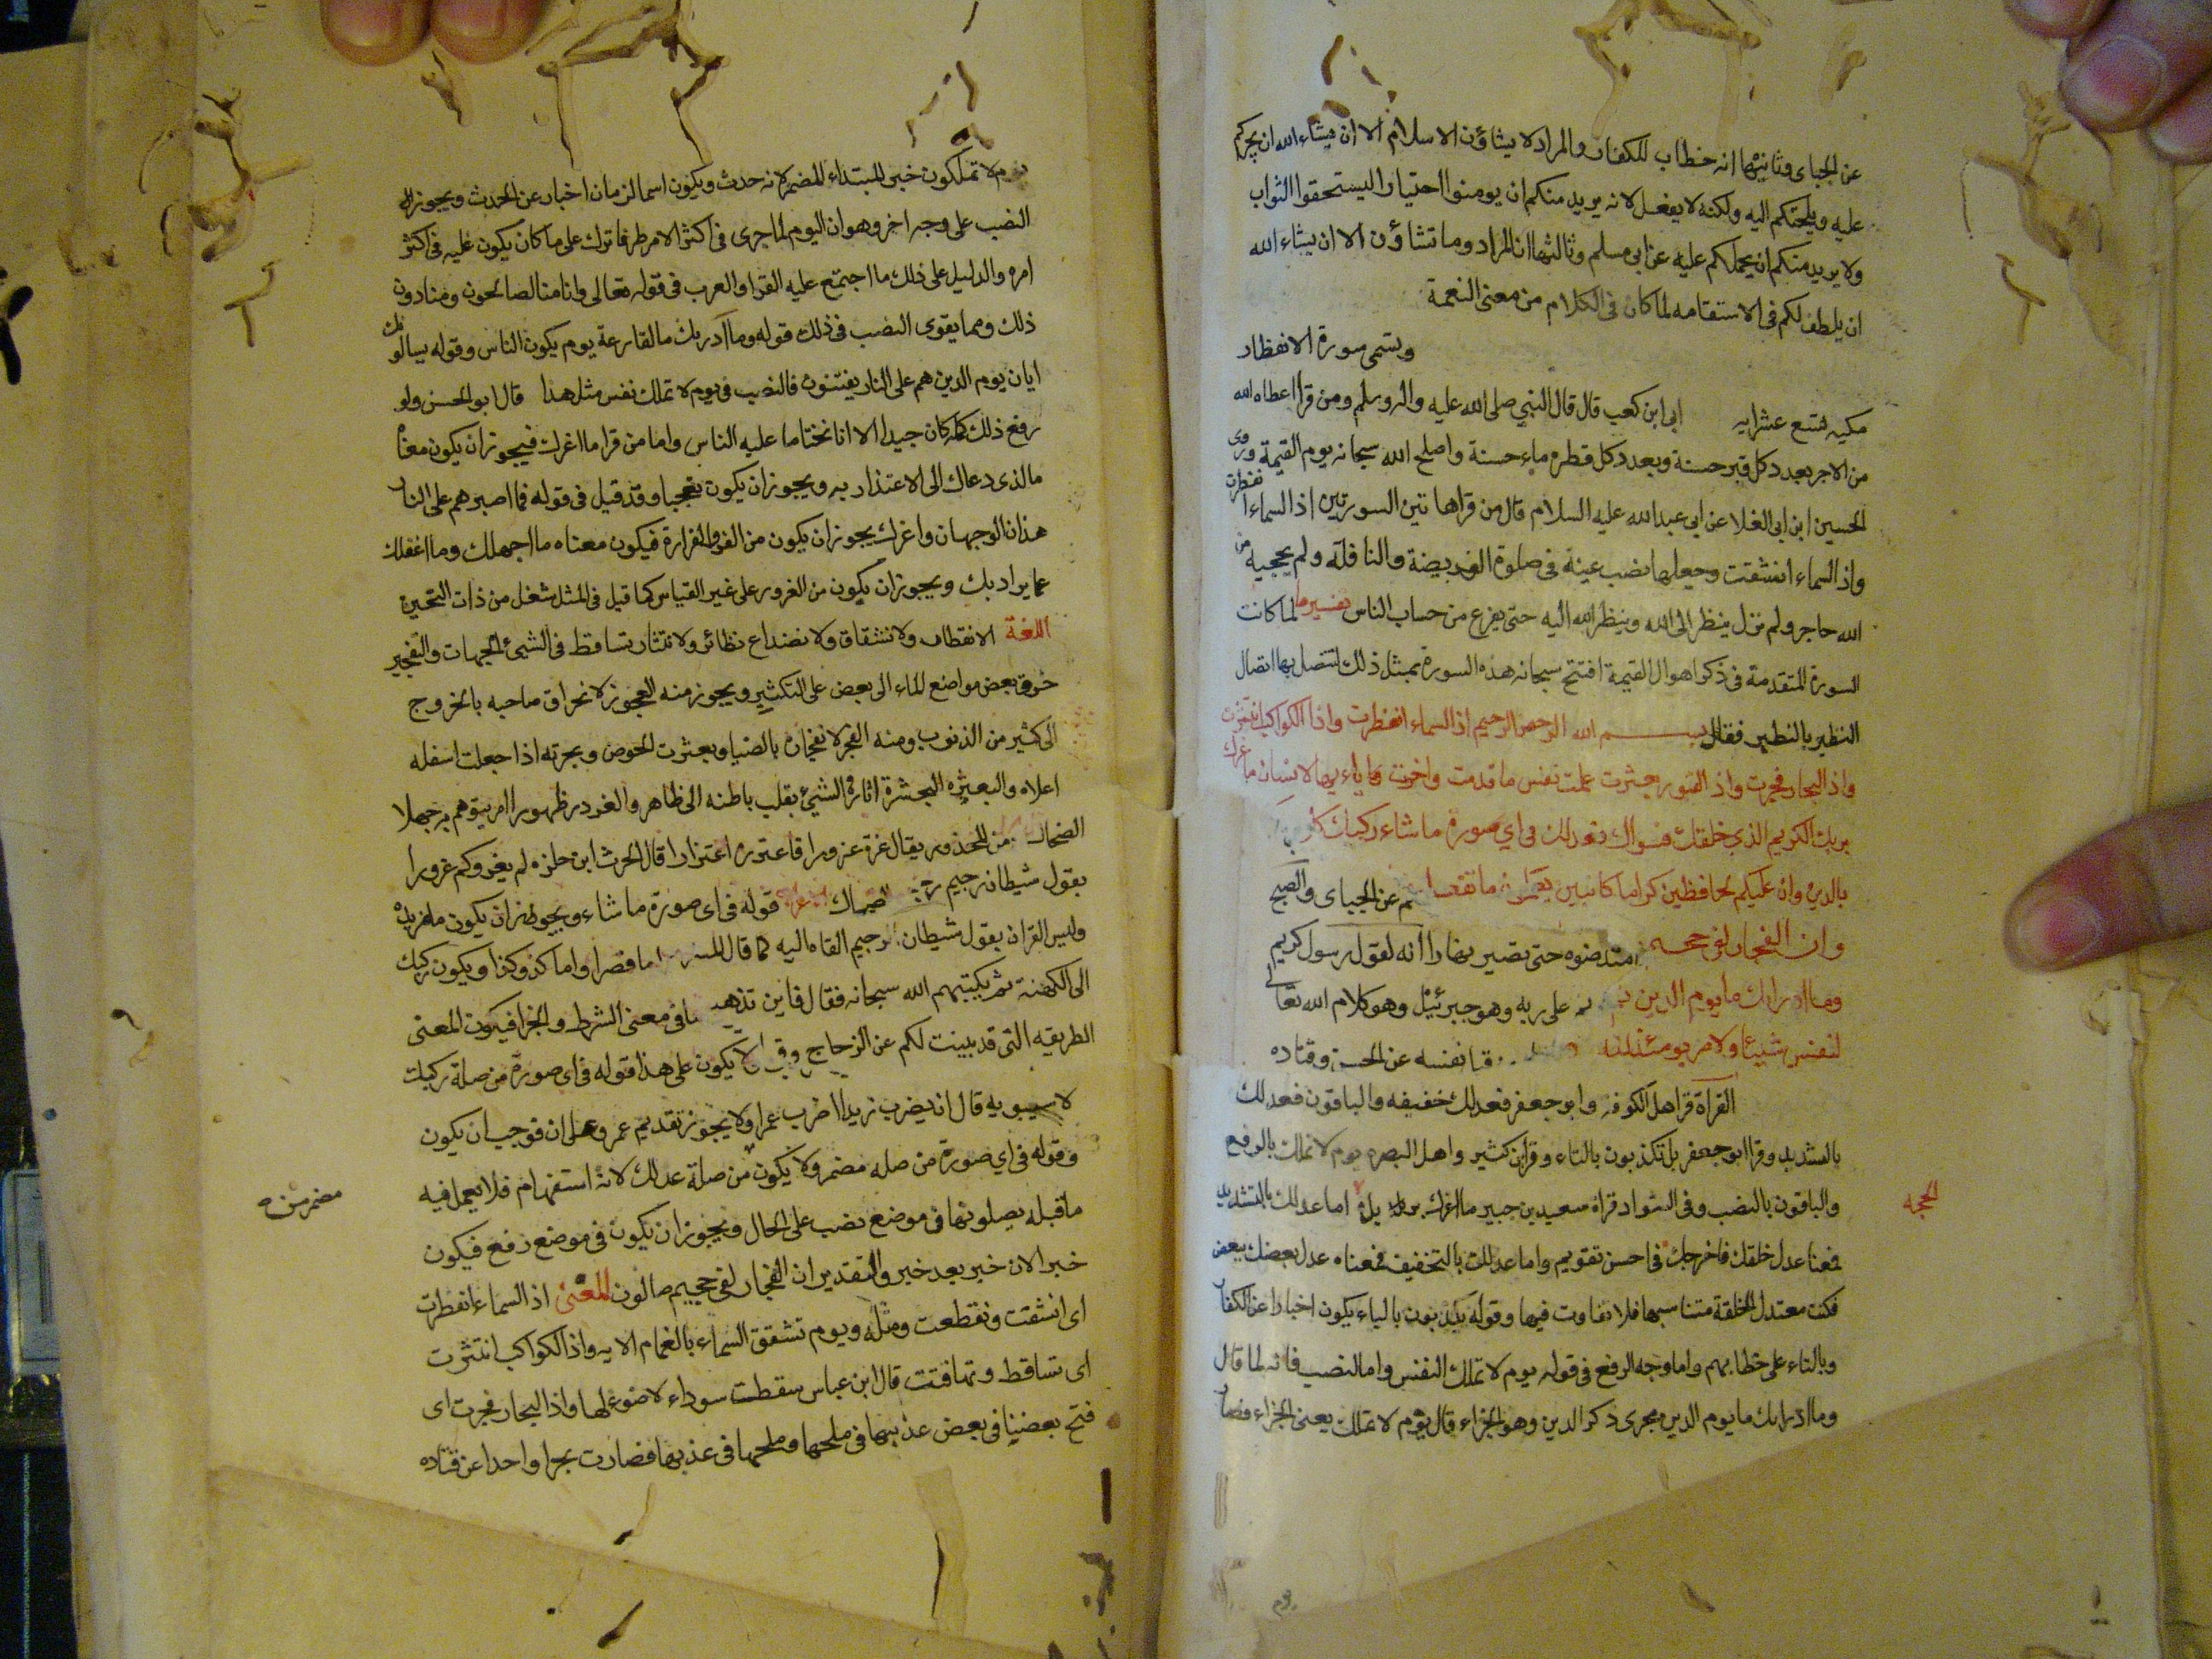 عن الجبائى وثانيها انه خطاب للكفار والمراد لا يشاؤن الاسلام الا ان يشاء الله ان يجبركم
عليه ويلجئكم اليه ولكنه لا يفعل لانه يريد منكم ان يومنوا اختيارا ليستحقوا الثواب
ولا يريد منكم ان يحملكم عليه عن ابى مسلم وثالثها ان المراد وما تشاؤن الا ان يشاء الله
ان يلطف لكم فى الاستقامه لما كان فى الكلام من معنى النعمة
وتسمى سورة الانفطار
مكيه تسع عشرايه ابى ابن كعب قال قال النبي صلى الله عليه واله وسلم ومن قرا اعطاه الله
من الاجر بعدد كل قبر حسنة وبعدد كل قطره ماء حسنة واصلح الله سبحانه يوم القيمة وروى
الحسين ابن ابى العلا عن ابى عبد الله عليه السلام قال من قراها تين السورتين اذ السماء انفطرت
واذ السماء انشقت وجعلهما نصب عينه فى صلوة الفريضة والنافلة ولم يحجبه من
الله حاجز ولم يزل ينظر الى الله وينظر الله اليه حتى يفرغ من حساب الناس تفسيرها لما كانت
السورة المتقدمة فى ذكر اهوال القيمة افتتح سبحانه هذه السورة بمثل ذلك لتتصل بها اتصال
النظير بالنظير فقال بسم الله الرحمن الرحيم اذ السماء انفطرت واذا الكواكب انتثرت
واذ البحار فجرت واذ القبور بعثرت علمت نفس ما قدمت واخرت ياايها الانسان ما غرك
بربك الكريم الذي خلقك فسواك فعدلك فى اي صورة ما شاء ركبك كلا
بالدين وان عليكم لحافظين كراما كاتبين عن الجبائى والصبح
وان الفجار لفى جحيم امتد ضوه حتى يصير نهارا انه لقول رسول كريم
وما ادراك ما يوم الدين على ربه وهو جبرئيل وهو كلام الله تعالى
لنفس شيئا والامر يومئذ لله نفسه عن الحسن وقتاده
القراة قرا اهل الكوفه وابو جعفر فعدلك خفيفه والباقون فعدلك
بالتشديد وقرا ابو جعفر بل تكذبون بالتاء وقرا ابن كثير واهل البصره يوم لا تملك بالرفع
والباقون بالنصب وفى الشواذ قراة سعيد بن جبير ما اغرك بربك اما عدلك بالتشديد
الحجه
فمعناه عدل خلقك فاخرجك فى احسن تقويم واما عدلك بالتخفيف فمعناه عدل بعضك ببعض
فكنت معتدل الخلقة متناسبها فلا تفاوت فيها وقوله يكذبون بالياء يكون اخبارا عن الكفار
وبالتاء على خطابهم واما وجه الرفع فى قوله يوم لا تملك النفس واما النصب فانه لما قال
وما ادراك ما يوم الدين مجرى ذكر الدين وهو الجزاء قال يوم لا تملك يعنى الجزاء
يوم
يوم لا تملك يكون خبر المبتداء المضمر لانه حدث ويكون اسما لزمان اخبار عن الحدث ويجوز
النصب على وجه اخر وهو ان اليوم لما جرى فى اكثر الامر ظرفا ترك على ما كان يكون عليه فى اكثر
امره والدليل على ذلك ما اجتمع عليه القرا والعرب فى قوله تعالى وانا منا الصالحون ومنا دون
ذلك ومما يقوى النصب فى ذلك قوله وما ادريك ما القارعة يوم يكون الناس وقوله يسالونك
ايان يوم الدين هم على النار يفتنون فالنصب فى يوم لا تملك نفس مثل هذا قال ابو الحسن ولو
رفع ذلك كله كان جيدا الا انا نختار ما عليه الناس واما من قرا ما اغرك فيجوز ان يكون معناه
ما الذى دعاك الى الاعتذار به ويجوز ان يكون تعجبا وقد قيل فى قوله فما اصبرهم على النار
هذان الوجهان واغرك يجوز ان يكون من الغر والغرارة فيكون معناه ما اجهلك وما اغفلك
عما يراد بك ويجوز ان يكون من الغرور على غير القياس كما قيل فى المثل شغل من ذات النحيين
اللغة الانفطار والانشقاق والانصداع نظائر والانتثار تساقط فى الشئ الجهات والتفجير
خرق بعض مواضع الماء الى بعض على التكثير ويجوز منه الفجور لانخراق صاحبه بالخروج
الى كثير من الذنوب ومنه الفجر لانفجاره بالضيا وبعثرت الحوض وبحثرته اذا جعلت اسفله
اعلاه والبعثره البحثرة اثارة الشئ بقلب باطنه الى ظاهر والغرور ظهور امر يتوهم به جهلا
الضحاك من المحذور يقال غره غرورا فاغتره اغترارا قال الحرث ابن حلزه لم يغروكم غرورا
بقول شيطان رجيم قوله فى اى صورة ما شاء ويجوز ان يكون ما مزيده
وليس القران بقول شيطان رجيم القاه اليه كما قال
الى الكهنة ثم يكتبهم الله سبحانه فقال فاين تذهبون ما فى معنى الشرط والجزا فيكون المعنى
الطريقه التى قد بينت لكم عن الزجاج لا يكون على هذا قوله فى اى صورة من صلة ركبك
لا سيبويه قال ان يضرب زيدا اضرب عمرا ولا يجوز تقديم عمرو على ان فوجب ان يكون
وقوله فى اي صورة من صله مضمر ولا يكون من صلة عدلك لانه استفهام فلا يعمل فيه
ما قبله يصلونها فى موضع نصب على الحال ويجوز ان يكون فى موضع رفع فيكون
خبرا لان خبر بعد خبر والتقدير ان الفجار لفى جحيم صالون المعنى اذ السماء انفطرت
اى انشقت وتقطعت ومثله ويوم تشقق السماء بالغمام الايه واذ الكواكب انتثرت
اى تساقط وتهافتت قال ابن عباس سقطت سوداء لا ضوء لها واذ البحار فجرت اى
فتح بعضها فى بعض عذبها فى ملحها وملحها فى عذبها فصارت بحرا واحدا عن قتاده